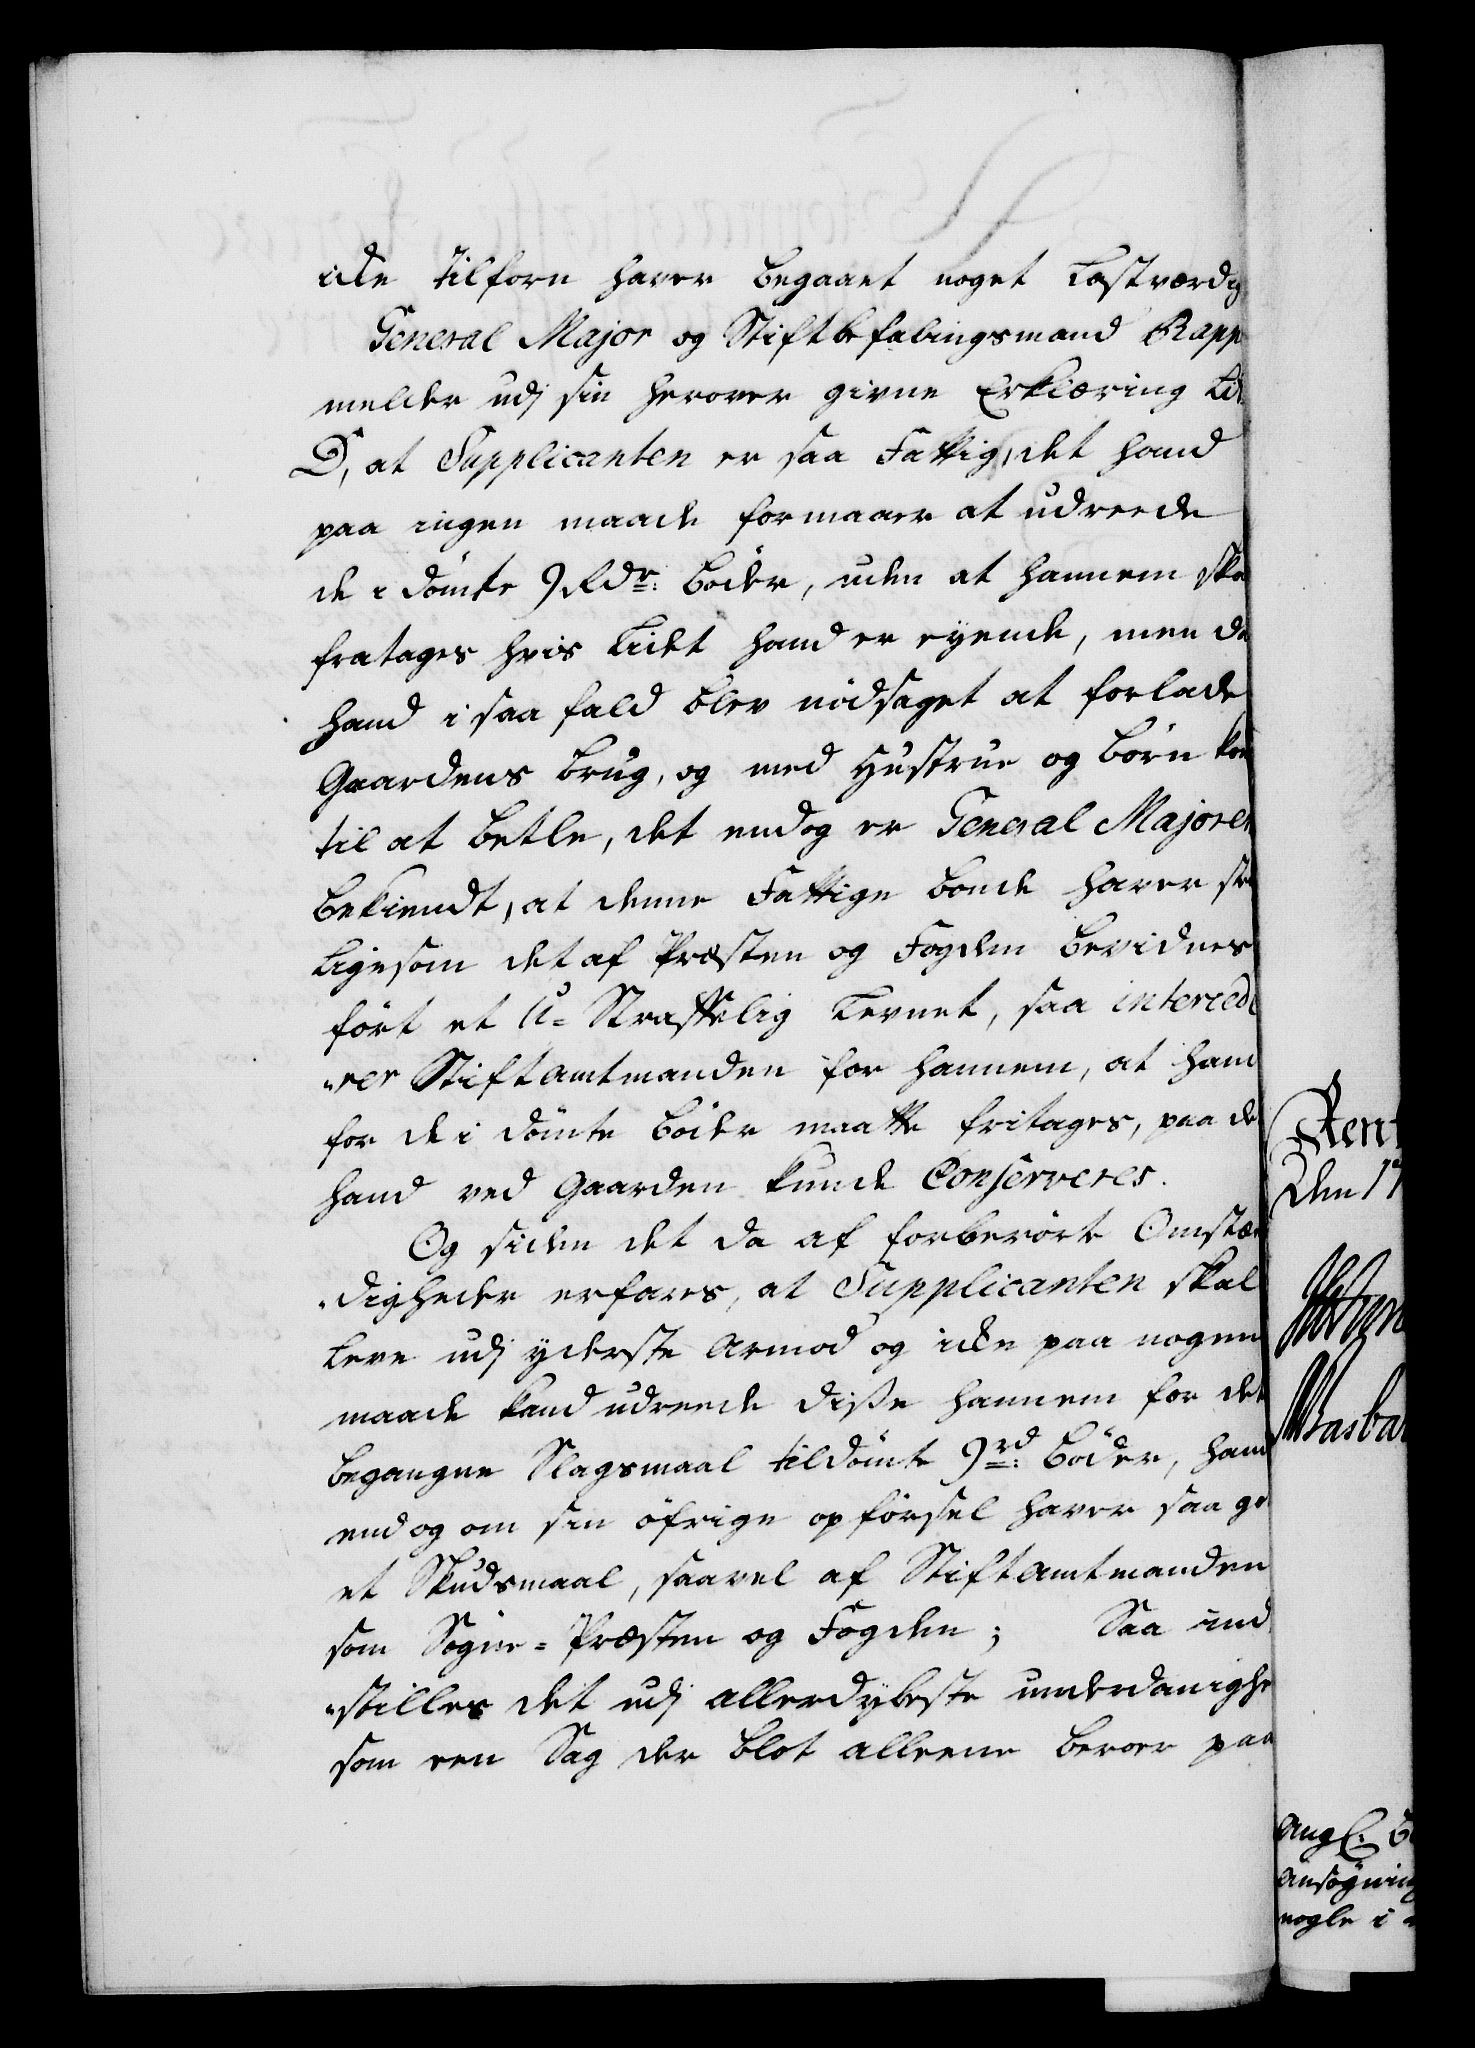 icke tilforn haver begaaet noget Lastværdig
General Major og Stiftbefalingsmand Rapp
melder udj sin herover givne Erklæring Lit
D, at Supplicanten er saa Fattig, det hand
paa ingen maade formaaer at udreede
de idömte 9 Rdr: Böder, uden at hannem ska
fratages hvis Lidet hand er eyende, men da
hand i saa fald blev nödsaget at forlade
Gaardens brug, og med Hustrue og börn kom
til at betle, det endog er General Majoren
bekiendt, at denne Fattige bonde haver ste
Ligesom det af Præsten og Fogden bevidnes
fört et U-Straffelig Levnet, saa interced
rer Stiftamtmanden for hannem, at hand
for de i dömte böder maatte fritages, paa de
hand ved Gaarden kunde Conserveres.
Og siden det da af forberörte Omstæn
digheder erfares, at Supplicanten skal
Leve udj yderste Armod og icke paa nogen
maade kand udreede disse hannem for det
begangne Slagsmaal tildömte 9 rd: böder, hand
endog om sin öfrige opförsel haver saa go
et Skudsmaal, saavel af Stiftamtmanden
som Sogne-Præsten og Fogden; Saa ind
stilles det udj allerdybeste underdanighe
som een Sag der blot alleene beroer paa
Rent
den 17
Ang.
ansögning
nogle i